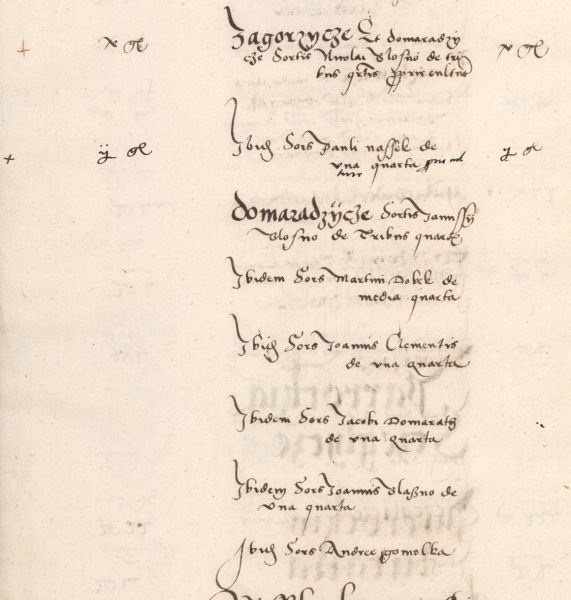 Zagorzycze Et domaradzy
x gl cze Sortis Nicolai Slosno de tri x gl
bus qrtis
Ibid Sors Pauli nassek de
ij gl una quarta gl
Domaradzÿcze Sortis Janussÿ
Slosno de Tribus quartis
Ibidem Sors Martini Dobek de
media quarta
Ibid Sors Joannis Clementis
de una quarta
Ibidem Sors Jacobi Domarath
de una quarta
Ibidem Sors Joannis Slaßno de
una quarta
Ibid Sors Andree gomolka